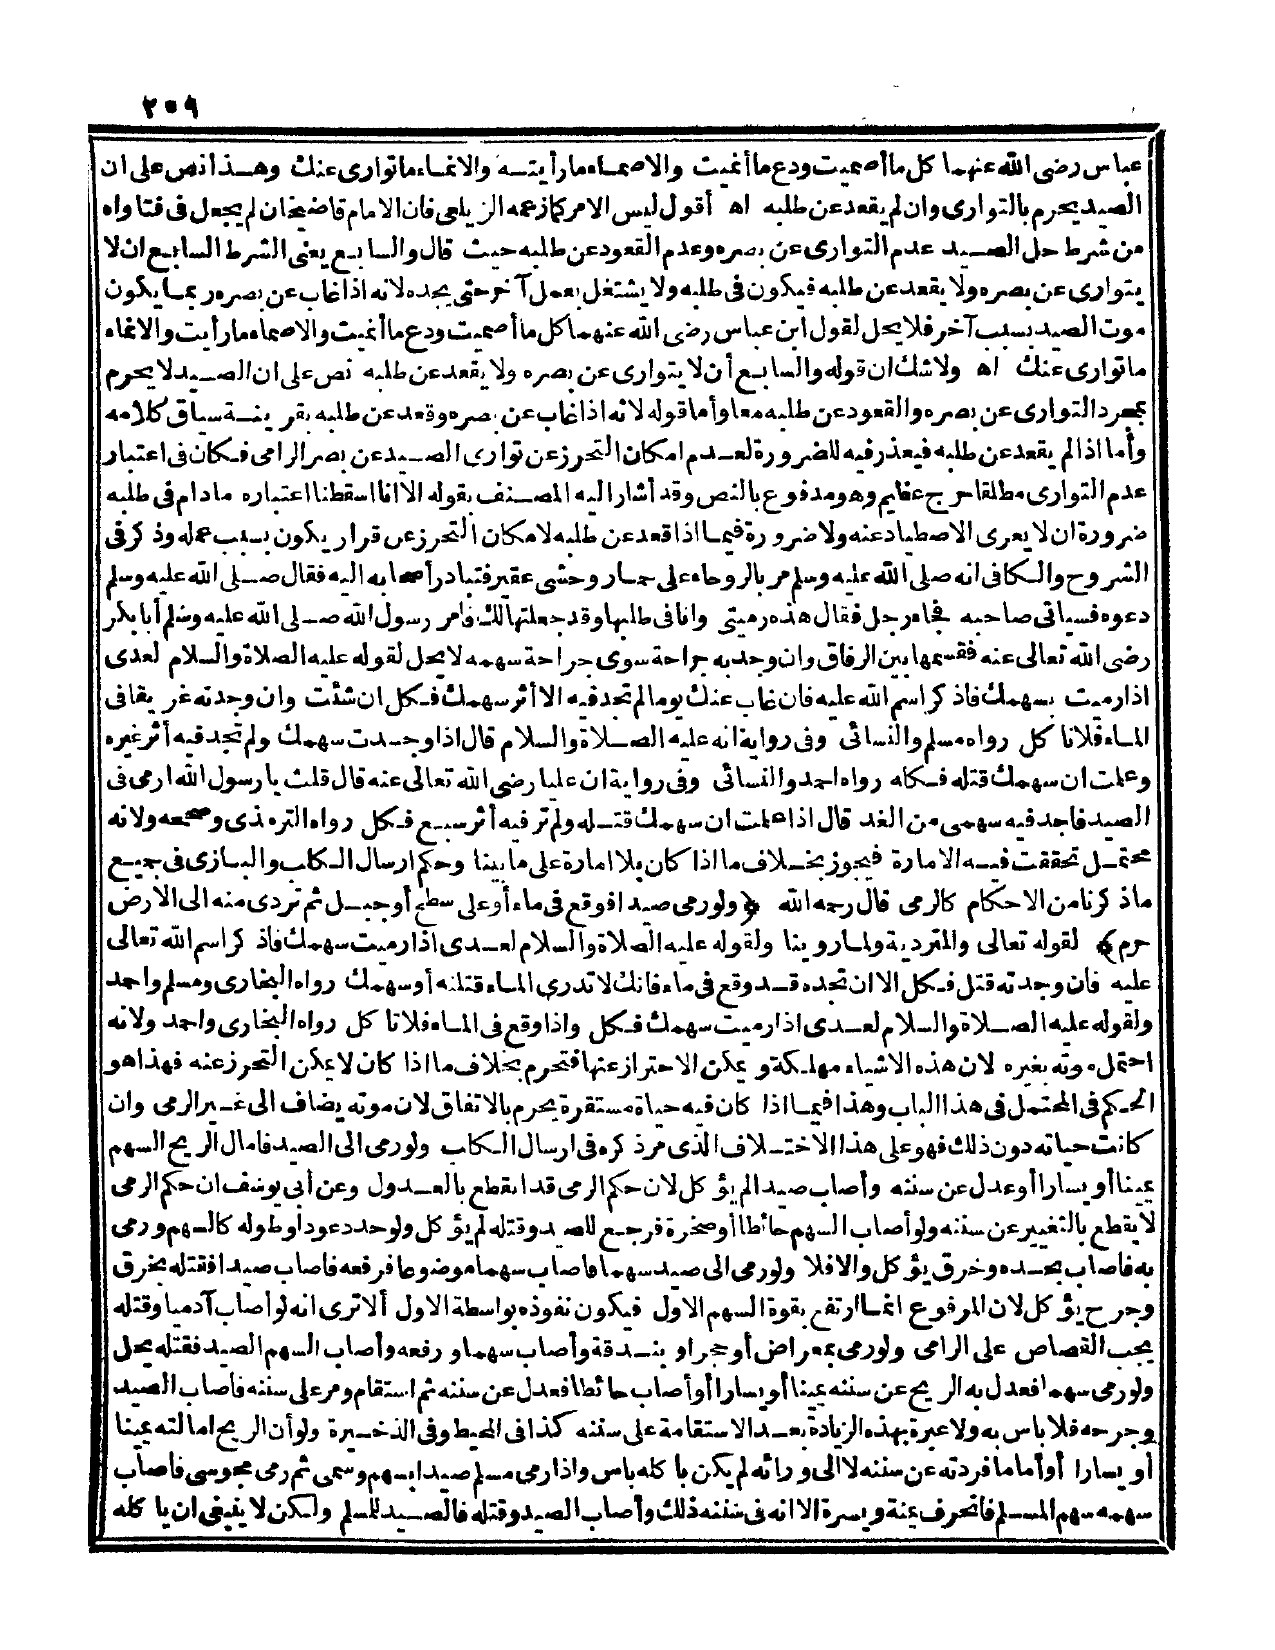 ٢٥٩
عباس رضى الله عنهما كل ما أصميت ودع ما أنميت والاصماء ما رأيته والانماء ما توارى عنك وهذا نص على ان
الصيد يحرم بالتوارى وان لم يقعد عن طلبه اه أقول ليس الامر كما زعمه الزيلعى فان الامام قاضيخان لم يجعل فى فتاواه
من شرط حل الصيد عدم التوارى عن بصره وعدم القعود عن طلبه حيث قال والسابع يعنى الشرط السابع ان لا
يتوارى عن بصره ولا يقعد عن طلبه فيكون فى طلبه ولا يشتغل بعمل آخر حتى يجده لانه اذا غاب عن بصره ربما يكون
موت الصيد بسبب آخر فلا يحل لقول ابن عباس رضى الله عنهما كل ما أصميت ودع ما أنميت والاصماء ما رأيت والانماء
ما توارى عنك اه ولا شك ان قوله والسابع أن لا يتوارى عن بصره ولا يقعد عن طلبه نص على ان الصيد لا يحرم
بمجرد التوارى عن بصره والقعود عن طلبه معا وأما قوله لانه اذا غاب عن بصره وقعد عن طلبه بقرينة سياق كلامه
وأما اذا لم يقعد عن طلبه فيعذر فيه للضرورة لعدم امكان التحرز عن توارى الصيد عن بصر الرامى فكان فى اعتبار
عدم التوارى مطلقا حرج عظيم وهو مدفوع بالنص وقد أشار اليه المصنف بقوله الا انا اسقطنا اعتباره ما دام فى طلبه
ضرورة ان لا يعرى الاصطياد عنه ولا ضرورة فيما اذا قعد عن طلبه لامكان التحرز عن قرار يكون بسبب عمله وذكر فى
الشروح والكافى انه صلى الله عليه وسلم مر بالروحاء على حمار وحشى عقير فتبادر أصحابه اليه فقال صلى الله عليه وسلم
دعوه فسياتى صاحبه فجاء رجل فقال هذه رميتى وانا فى طلبها وقد جعلتها لك فامر رسول الله صلى الله عليه وسلم أبا بكر
رضى الله تعالى عنه فقسمها بين الرفاق وان وجد به جراحة سوى جراحة سهمه لا يحل لقوله عليه الصلاة والسلام لعدى
اذا رميت بسهمك فاذكر اسم الله عليه فان غاب عنك يوما لم تجد فيه الا أثر سهمك فكل ان شئت وان وجدته غريقا فى
الماء فلا تاكل رواه مسلم والنسائى وفى رواية انه عليه الصلاة والسلام قال اذا وجدت سهمك ولم تجد فيه أثر غيره
وعلمت ان سهمك قتله فكله رواه احمد والنسائى وفى رواية ان عليا رضى الله تعالى عنه قال قلت يا رسول الله ارمى فى
الصيد فاجد فيه سهمى من الغد قال اذا علمت ان سهمك قتله ولم تر فيه أثر سبع فكل رواه الترمذى وصححه ولانه
محتمل تحققت فيه الامارة فيجوز بخلاف ما اذا كان بلا امارة على ما بينا وحكم ارسال الكلب والبازى فى جميع
ما ذكرنا من الاحكام كالرمى قال رحمه الله ﴿ولو رمى صيدا فوقع فى ماء أو على سطح أو جبل ثم تردى منه الى الارض
حرم﴾ لقوله تعالى والمتردية ولما روينا ولقوله عليه الصلاة والسلام لعدى اذا رميت سهمك فاذكر اسم الله تعالى
عليه فان وجدته قتل فكل الا ان تجده قد وقع فى ماء فانك لا تدرى الماء قتله أو سهمك رواه البخارى ومسلم واحمد
ولقوله عليه الصلاة والسلام لعدى اذا رميت سهمك فكل واذا وقع فى الماء فلا تاكل رواه البخارى واحمد ولانه
احتمل موته بغيره لان هذه الاشياء مهلكة ويمكن الاحتراز عنها فتحرم بخلاف ما اذا كان لا يمكن التحرز عنه فهذا هو
الحكم فى المحتمل فى هذا الباب وهذا فيما اذا كان فيه حياة مستقرة يحرم بالاتفاق لان موته يضاف الى غير الرمى وان
كانت حياته دون ذلك فهو على هذا الاختلاف الذى مر ذكره فى ارسال الكلب ولو رمى الى الصيد فامال الريح السهم
يمينا أو يسارا أو عدل عن سننه وأصاب صيدا لم يؤكل لان حكم الرمى قد انقطع بالعدول وعن أبى يوسف ان حكم الرمى
لا يقطع بالتغيير عن سننه ولو أصاب السهم حائطا أو صخرة فرجع للصيد وقتله لم يؤكل ولو حدد عودا وطوله كالسهم ورمى
به فاصاب بحده وخرق يؤكل والا فلا ولو رمى الى صيد سهما فاصاب سهما موضوعا فرفعه فاصاب صيدا فقتله بخرق
وجرح يؤكل لان المرفوع انما ارتفع بقوة السهم الاول فيكون نفوذه بواسطة الاول ألا ترى انه لو أصاب آدميا وقتله
يجب القصاص على الرامى ولو رمى بمعراض أو حجر او بندقة وأصاب سهما ورفعه وأصاب السهم الصيد فقتله يحل
ولو رمى سهما فعدل به الريح عن سننه يمينا أو يسارا أو أصاب حائطا فعدل عن سننه ثم استقام ومر على سننه فأصاب الصيد
وجرحه فلا باس به ولا عبرة بهذه الزيادة بعد الاستقامة على سننه كذا فى المحيط وفى الذخيرة ولو أن الريح امالته يمينا
أو يسارا أو أماما فردته عن سننه لا الى ورائه لم يكن باكله باس واذا رمى مسلم صيدا بسهم وسمى ثم رمى مجوسى فاصاب
سهمه سهم المسلم فانحرف يمنة ويسرة الا انه فى سننه ذلك وأصاب الصيد وقتله فالصيد للمسلم ولكن لا ينبغى ان ياكله